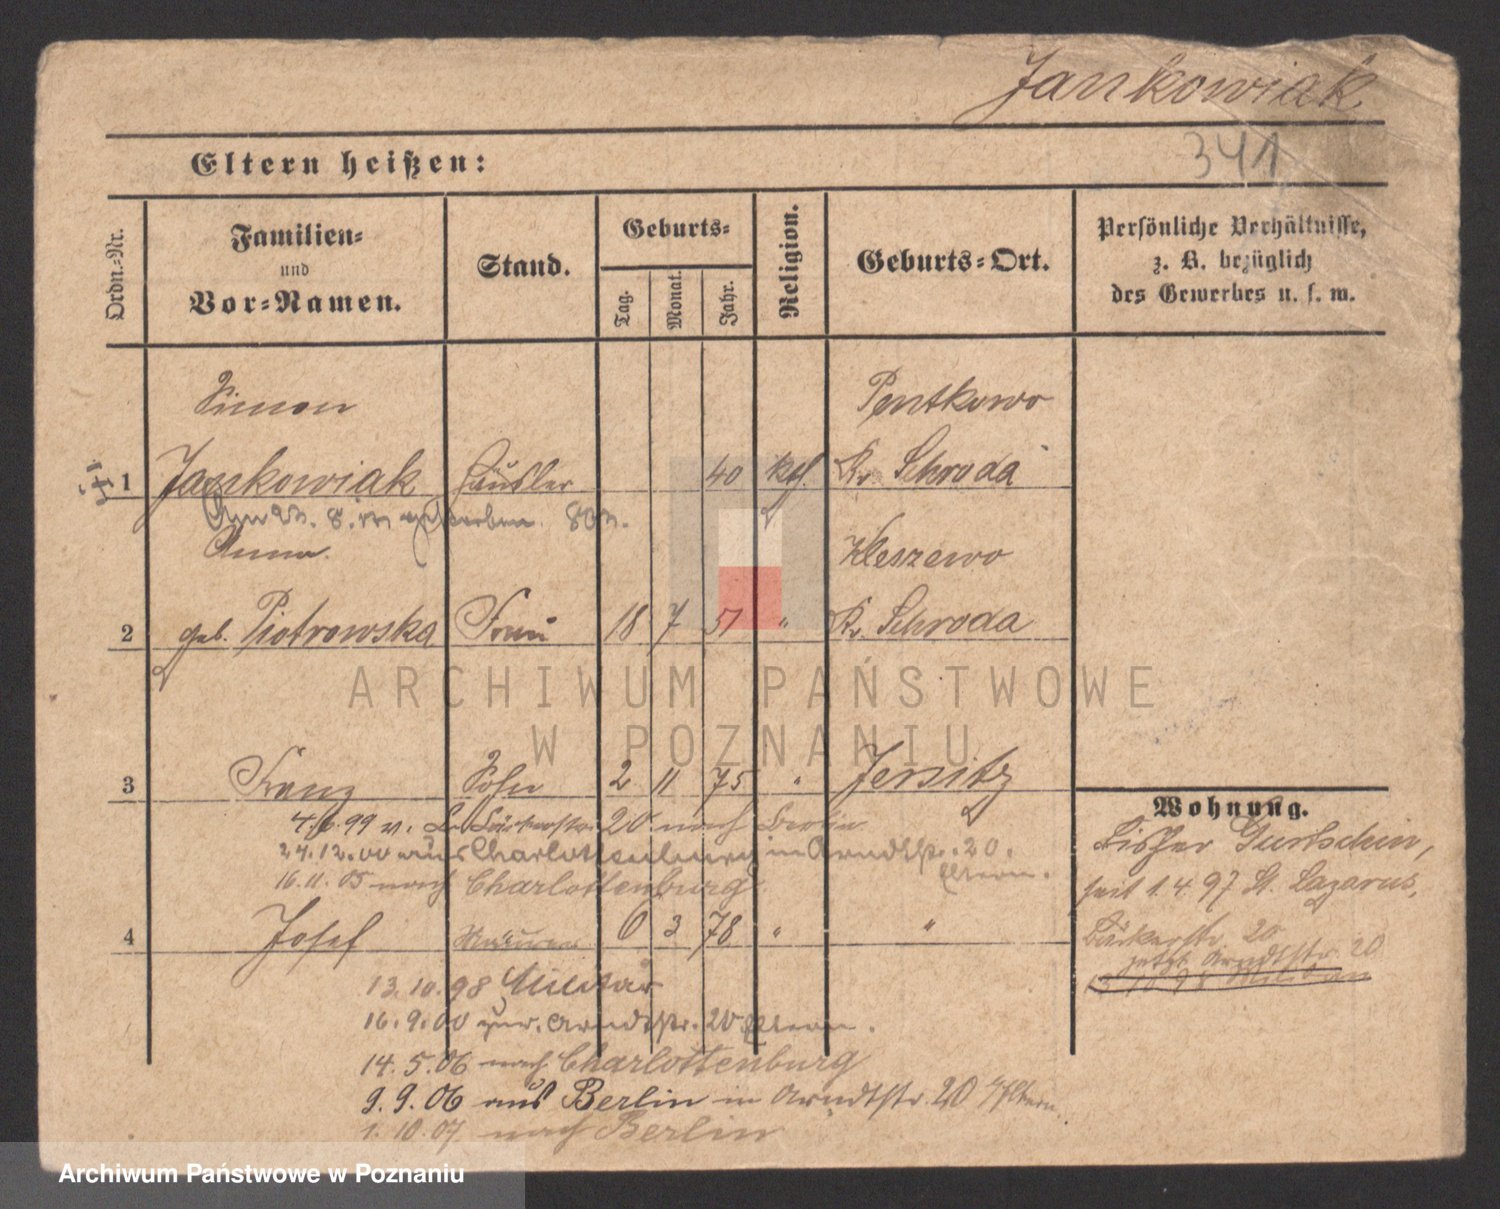 Jankowiak
341
Eltern heißen:
Ordn.-Nr.
Familien-
und
Vor-Namen.
Stand.
Geburts-
Tag.
Monat.
Jahr.
Religion.
Geburts-Ort.
Persönliche Verhältnisse,
z. B. bezüglich
des Gewerbes u. s. w.
Simon Pentkowo
1 Jankowiak Häusler 40 kth. Kr. Schroda
gestorben.
Anna Kleszewo
2 geb. Piotrowska Frau 18 7 51 " Kr. Schroda
3 Franz Sohn 2 11 75 " Jersitz
4/6.99 v. Bäckerstr. 20 nach Berlin
24.12.00 aus Charlottenburg in Arndtstr. 20.
Eltern.
16.11.05 nach Charlottenburg
4 Josef 3 78 " "
13.10.98 Militär
16.9.00 zur. Arndtstr. 20 Eltern.
14.5.06 nach Charlottenburg
9.9.06 aus Berlin in Arndtstr. 20 Eltern.
1.10.07 nach Berlin
Wohnung.
Bisher Gurtschin,
seit 1.4.97 St. Lazarus,
Bäckerstr. 20
jetzt Arndtstr. 20
ARCHIWUM PAŃSTWOWE
W POZNANIU
Archiwum Państwowe w Poznaniu